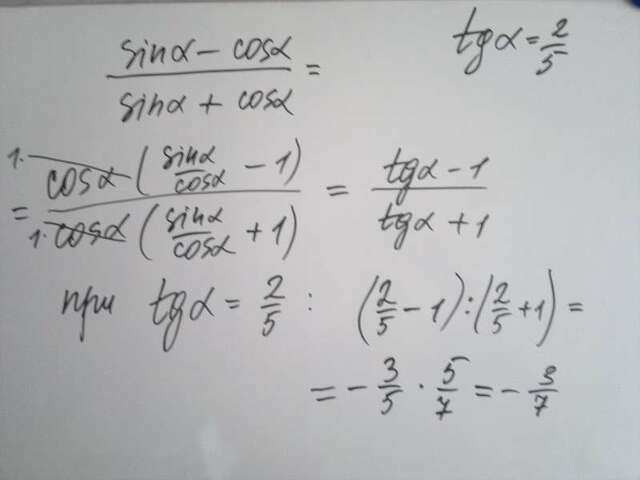 (sinα − cosα)/(sinα + cosα) =
tgα = 2/5
= 1· cosα (sinα/cosα − 1) / 1· cosα (sinα/cosα + 1) = (tgα − 1)/(tgα + 1)
при tgα = 2/5 : (2/5 − 1) : (2/5 + 1) =
= − 3/5 · 5/7 = − 3/7